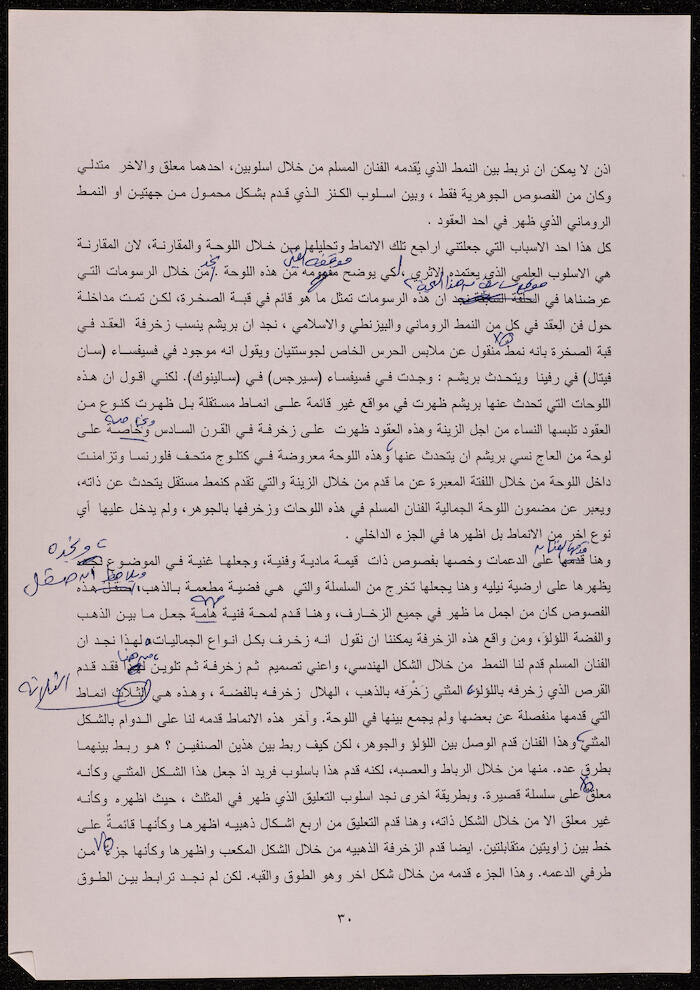 اذن لا يمكن ان نربط بين النمط الذي يُقدمه الفنان المسلم من خلال اسلوبين، احدهما معلق والاخر متدلي
وكان من الفصوص الجوهرية فقط ، وبين اسلوب الكنز الـذي قدم بشكل محمول مـن جهتـين او النمـط
الروماني الذي ظهر في احد العقود .
كل هذا احد الاسباب التي جعلتني اراجع تلك الانماط وتحليلها من خلال اللوحة والمقارنة، لان المقارنة
هي الاسلوب العلمي الذي يعتمده الاثري ، لكي يوضح مفهومه من هذه اللوحة . من خلال الرسومات التـي
عرضناها في الحلقة السابقة نجد ان هذه الرسومات تمثل ما هو قائم في قبة الصخرة، لكـن تمـت مداخلـة
حول فن العقد في كل من النمط الروماني والبيزنطي والاسلامي ، نجد ان بريشم ينسب زخرفة العقـد فـي
قبة الصخرة بانه نمط منقول عن ملابس الحرس الخاص لجوستنيان ويقول انه موجود في فسيفسـاء (سـان
فيتال) في رفينا ويتحدث بريشم : وجدت في فسيفساء (سيرجس) في (سالينوك). لكني اقول ان هـذه
اللوحات التي تحدث عنها بريشم ظهرت في مواقع غير قائمة علـى انمـاط مستقلة بـل ظهـرت كنـوع مـن
العقود تلبسها النساء من اجل الزينة وهذه العقود ظهرت على زخرفـة فـي القـرن السـادس وخاصـة علـى
لوحة من العاج نسي بريشم ان يتحدث عنها وهذه اللوحة معروضة فـي كتلـوج متحـف فلورنسـا وتزامنـت
داخل اللوحة من خلال اللفتة المعبرة عن ما قدم من خلال الزينة والتي تقدم كنمط مستقل يتحدث عن ذاته،
ويعبر عن مضمون اللوحة الجمالية الفنان المسلم في هذه اللوحات وزخرفها بالجوهر، ولم يدخل عليها أي
نوع اخر من الانماط بل اظهرها في الجزء الداخلي .
ونجده
وهنا قدمها على الدعمات وخصها بفصوص ذات قيمـة ماديـة وفنيـة، وجعلهـا غنيـة فـي الموضـوع
يظهرها على ارضية نيليه وهنا يجعلها تخرج من السلسلة والتي هي فضية مطعمة بالذهب، صقل هذه
الفصوص كان من اجمل ما ظهر في جميع الزخـارف، وهنـا قـدم لمحـة فنيـة هامـة جعـل مـا بـين الـذهب
والفضة اللؤلؤ، ومن واقع هذه الزخرفة يمكننا ان نقول انـه زخـرف بكـل انـواع الجماليـات، لهـذا نجـد ان
الفنان المسلم قدم لنا النمط من خلال الشكل الهندسي، واعني تصميم ثـم زخرفـة ثـم تلـوين فقـد قـدم
الثلاثة
القرص الذي زخرفه باللؤلؤ، المثني زَخْرَفه بالذهب ، الهلال زخرفـه بالفضـة ، وهـذه هـي الثـلاث انمـاط
التي قدمها منفصلة عن بعضها ولم يجمع بينها في اللوحة. وآخر هذه الانماط قدمه لنا على الـدوام بالشـكل
المثني، وهذا الفنان قدم الوصل بين اللؤلؤ والجوهر، لكن كيف ربط بين هذين الصنفيـن ؟ هـو ربـط بينهمـا
بطرق عده. منها من خلال الرباط والعصبه، لكنه قدم هذا باسلوب فريد اذ جعل هذا الشـكل المثنـي وكأنـه
معلق على سلسلة قصيرة. وبطريقة اخرى نجد اسلوب التعليق الذي ظهر في المثلث ، حيث اظهره وكأنـه
غير معلق الا من خلال الشكل ذاته، وهنا قدم التعليق من اربع اشكال ذهبيـه اظهرهـا وكأنهـا قائمـةٌ علـى
خط بين زاويتين متقابلتين. ايضا قدم الزخرفة الذهبيه من خلال الشكل المكعب واظهرها وكأنها جزء مـن
طرفي الدعمه. وهذا الجزء قدمه من خلال شكل اخر وهو الطوق والقبه. لكن لم نجـد ترابـط بـين الطـوق
٣٠